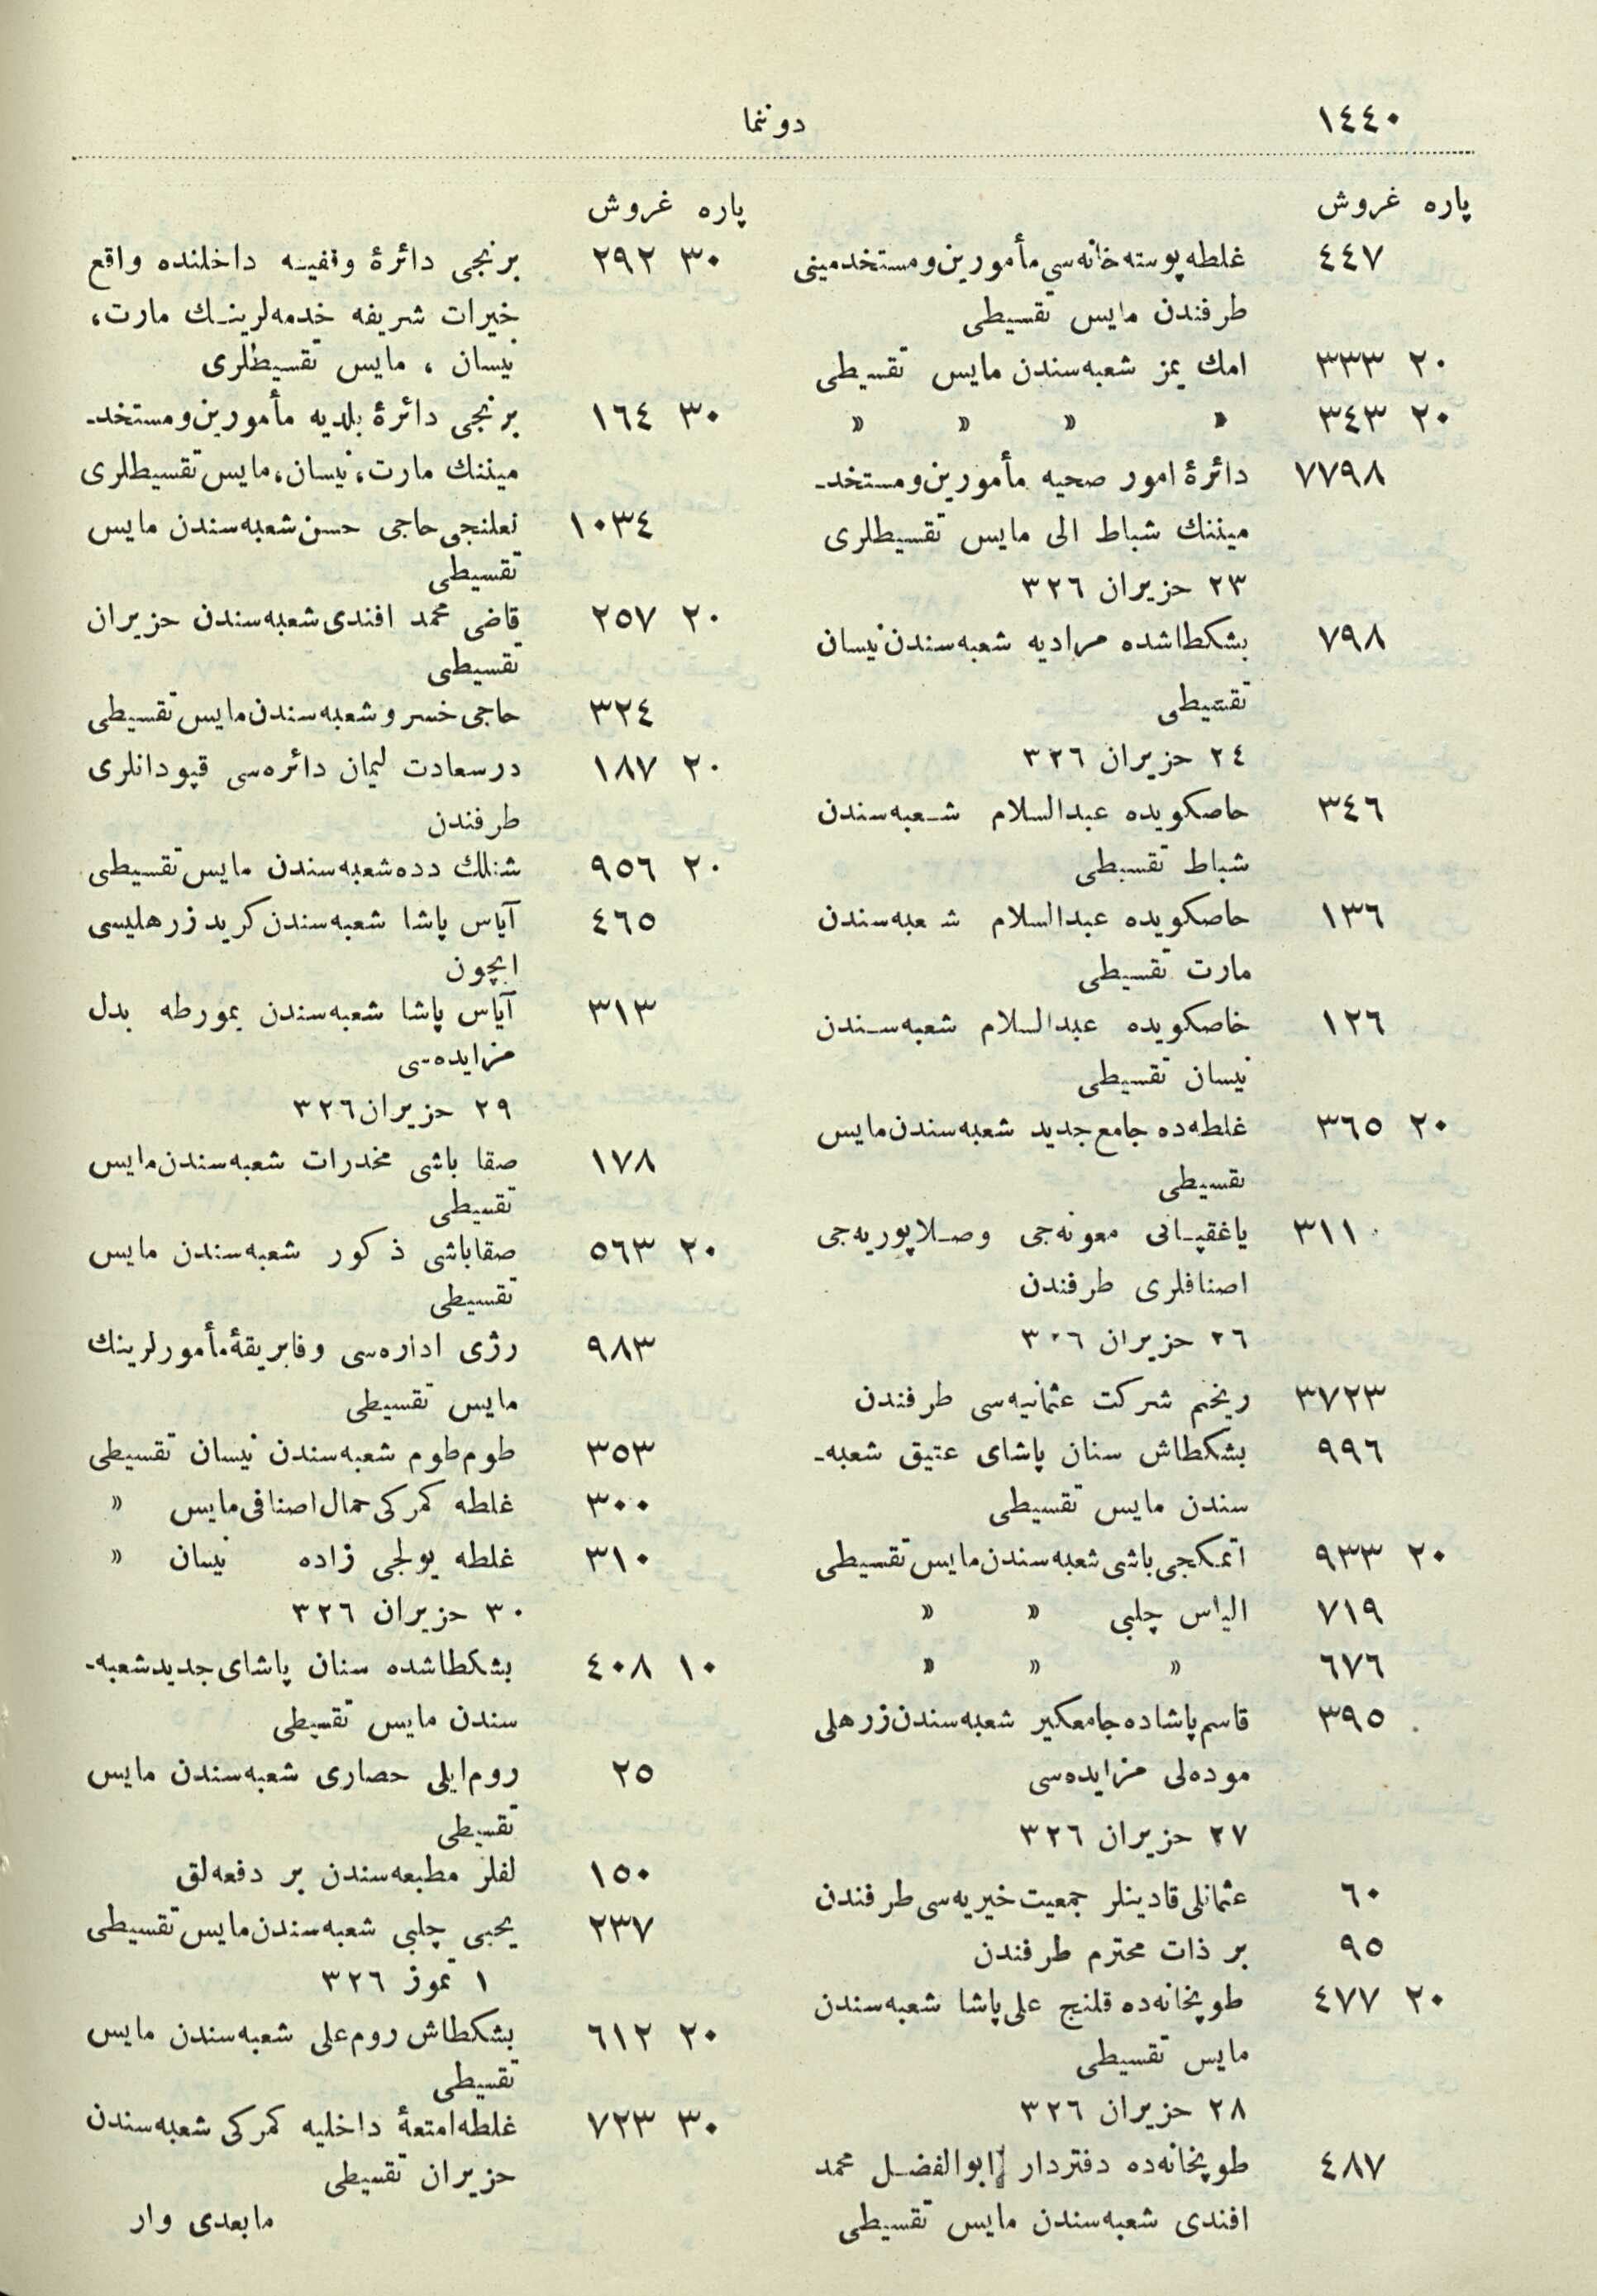 ١٤٤٠
دوننما
پاره غروش
٤٤٧ غلطه پوسته خانه‌سی مأمورین و مستخدمینی
طرفندن مایس تقسیطی
٢٠ ٣٣٣ امك یمز شعبه‌سندن مایس تقسیطی
٢٠ ٣٤٣ » » » »
٧٧٩٨ دائرهٔ امور صحیه مأمورین و مستخد-
میننك شباط الی مایس تقسیطلری
٢٣ حزیران ٣٢٦
٧٩٨ بشكطاشده مرادیه شعبه‌سندن نیسان
تقسیطی
٢٤ حزیران ٣٢٦
٣٤٦ حاصكویده عبدالسلام شعبه‌سندن
شباط تقسیطی
١٣٦ حاصكویده عبدالسلام شعبه‌سندن
مارت تقسیطی
١٢٦ خاصكویده عبدالسلام شعبه‌سندن
نیسان تقسیطی
٢٠ ٣٦٥ غلطه‌ده جامع جدید شعبه‌سندن مایس
تقسیطی
٣١١٠ یاغقپانی معونه‌جی وصلاپوریه‌جی
اصنافلری طرفندن
٢٦ حزیران ٣٢٦
٣٧٢٣ ریختم شركت عثمانیه‌سی طرفندن
٩٩٦ بشكطاش سنان پاشای عتیق شعبه-
سندن مایس تقسیطی
٢٠ ٩٣٣ اتمكجی باشی شعبه‌سندن مایس تقسیطی
٧١٩ الیاس چلبی » »
٦٧٦ » » »
٣٩٥ قاسم پاشاده جامعكیر شعبه‌سندن زرهلی
موده‌لی مزایده‌سی
٢٧ حزیران ٣٢٦
٦٠ عثمانلی قادینلر جمعیت خیریه‌سی طرفندن
٩٥ بر ذات محترم طرفندن
٢٠ ٤٧٧ طوپخانه‌ده قلنج علی پاشا شعبه‌سندن
مایس تقسیطی
٢٨ حزیران ٣٢٦
٤٨٧ طوپخانه‌ده دفتردار ابوالفضل محمد
افندی شعبه‌سندن مایس تقسیطی
پاره غروش
٣٠ ٢٩٢ برنجی دائرهٔ وقفیه داخلنده واقع
خیرات شریفه خدمه‌لرینك مارت،
نیسان ، مایس تقسیطلری
٣٠ ١٦٤ برنجی دائرهٔ بلدیه مأمورین و مستخد-
میننك مارت، نیسان، مایس تقسیطلری
١٠٣٤ نعلنجی حاجی حسن شعبه‌سندن مایس
تقسیطی
٢٠ ٢٥٧ قاضی محمد افندی شعبه‌سندن حزیران
تقسیطی
٣٢٤ حاجی خسرو شعبه‌سندن مایس تقسیطی
٢٠ ١٨٧ درسعادت لیمان دائره‌سی قپودانلری
طرفندن
٢٠ ٩٥٦ شنلك دده شعبه‌سندن مایس تقسیطی
٤٦٥ آیاس پاشا شعبه‌سندن كرید زرهلیسی
ایچون
٣١٣ آیاس پاشا شعبه‌سندن یمورطه بدل
مزایده‌سی
٢٩ حزیران ٣٢٦
١٧٨ صقا باشی مخدرات شعبه‌سندن مایس
تقسیطی
٢٠ ٥٦٣ صقاباشی ذكور شعبه‌سندن مایس
تقسیطی
٩٨٣ رژی اداره‌سی وفابریقهٔ مأمورلرینك
مایس تقسیطی
٣٥٣ طوم طوم شعبه‌سندن نیسان تقسیطی
٣٠٠ غلطه كمركی حمال اصنافی مایس »
٣١٠ غلطه یولجی زاده نیسان »
٣٠ حزیران ٣٢٦
١٠ ٤٠٨ بشكطاشده سنان پاشای جدید شعبه-
سندن مایس تقسیطی
٢٥ روم‌ایلی حصاری شعبه‌سندن مایس
تقسیطی
١٥٠ لفلر مطبعه‌سندن بر دفعه‌لق
٢٣٧ یحیی چلبی شعبه‌سندن مایس تقسیطی
١ تموز ٣٢٦
٢٠ ٦١٢ بشكطاش روم‌علی شعبه‌سندن مایس
تقسیطی
٣٠ ٧٢٣ غلطه امتعهٔ داخلیه كمركی شعبه‌سندن
حزیران تقسیطی
مابعدی وار